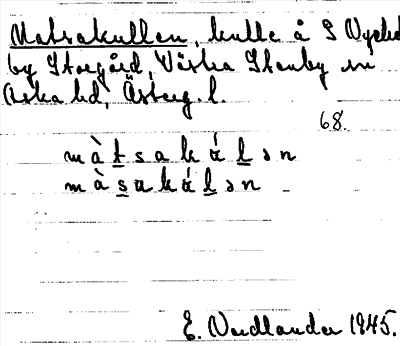 Matsakullen, kulle å S Nyckel
by Storgård, Västra Stenby sn
Aska hd, Österg. l.
68.
m à t̲ s a k ǻ l̲ ə n
m à s̲ a k ǻ l̲ ə n
E. Nordlander 1945.